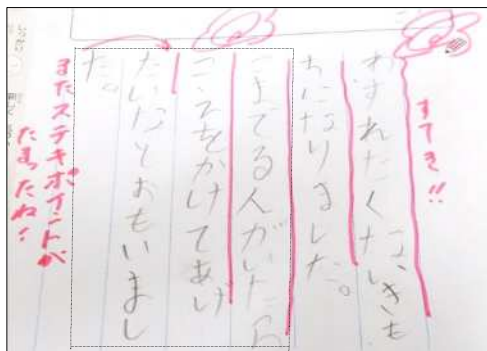 すてき!!
わすれたくないきも
ちになりました。
こまてる人がいたら
こえをかけてあげ
たいなとおもいまし
た。
またステキポイントが
たまったね!